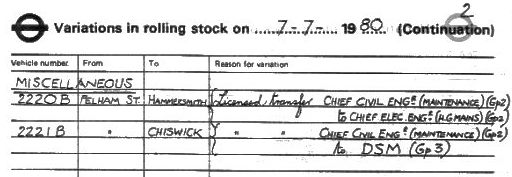 2
Variations in rolling stock on 7-7- 1980 (Continuation)
Vehicle number From To Reason for variation
MISCELLANEOUS
2220B PELHAM ST. HAMMERSMITH Licensed transfer CHIEF CIVIL ENGR (MAINTENANCE) (Gp2)
to CHIEF ELEC. ENGR (H.G MAINS) (Gp2)
2221B " CHISWICK " " CHIEF CIVIL ENGR (MAINTENANCE) (Gp2)
to DSM (Gp 3)